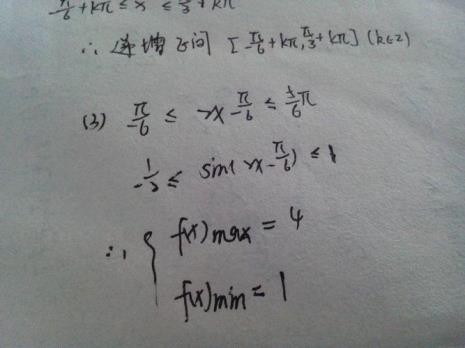 -π/6+kπ≤x≤π/3+kπ
∴递增区间[-π/6+kπ,π/3+kπ](k∈Z)
(3) -π/6≤2x-π/6≤5/6π
-1/2≤sin(2x-π/6)≤1
∴{f(x)max=4
f(x)min=1